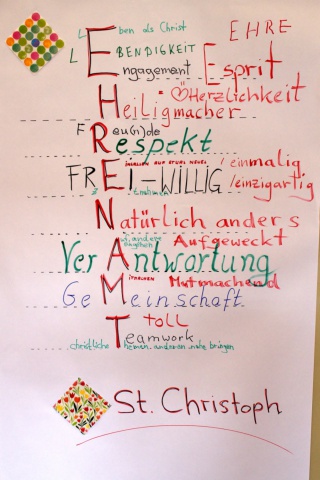 Leben als Christ
EHRE
LEBENDIGKEIT
Engagement Esprit
Herzlichkeit
Heiligmacher
Freu(n)de
Respekt
FREI-WILLIG /einmalig
/einzigartig
Natürlich anders
auf andere zugehen Aufgeweckt
VerAntwortung
Mutmachend
GeMeinschaft
toll
Teamwork
christliche Themen anderen nahe bringen
St. Christoph